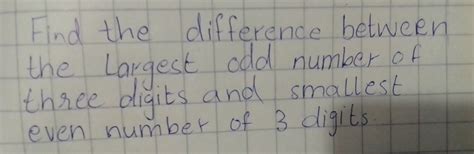 Find the difference between
the Largest odd number of
three digits and smallest
even number of 3 digits.